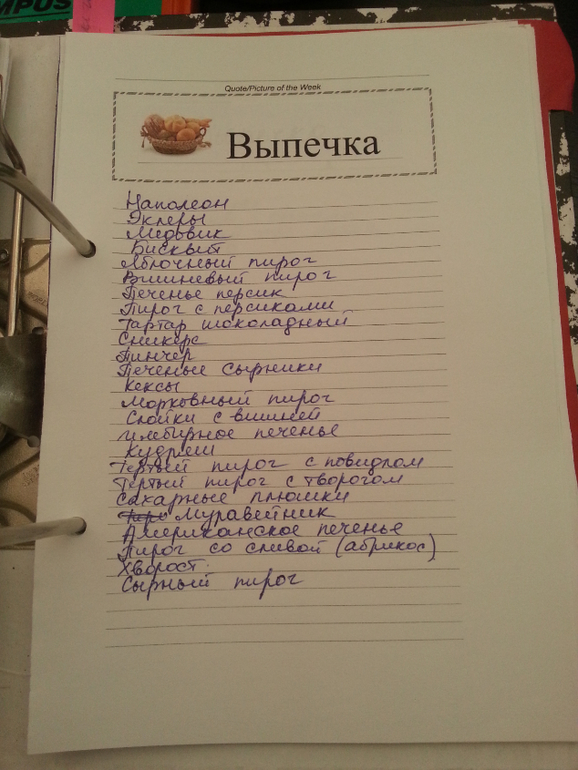 MPUS
Quote/Picture of the Week
Выпечка
Наполеон
Эклеры
Медовик
Бисквит
Яблочный пирог
Вишневый пирог
Печенье персик
Пирог с персиками
Тартар шоколадный
Сникерс
Пинчер
Печенье Сырники
Кексы
Морковный пирог
Слойки с вишней
Имбирное печенье
Кудряш
Тертый пирог с повидлом
Тертый пирог с творогом
Сахарные плюшки
Муравейник
Американское печенье
Пирог со сливой (абрикос)
Хворост.
Сырный пирог